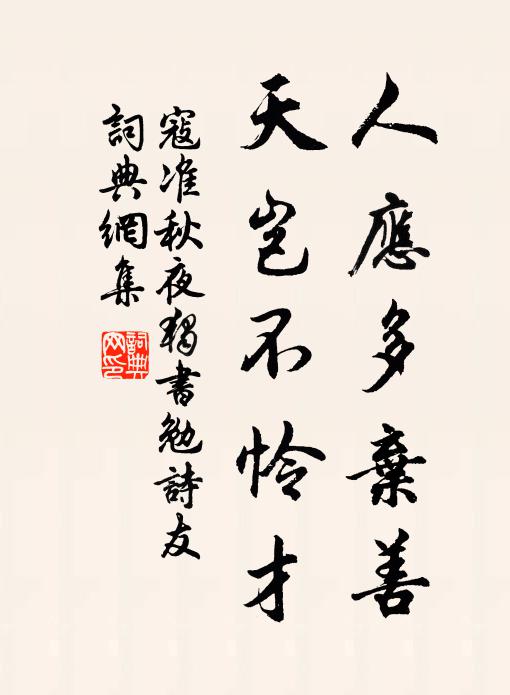 人應多棄善
天豈不怜才
寇准秋夜獨書勉詩友
詞典網集
詞典网印